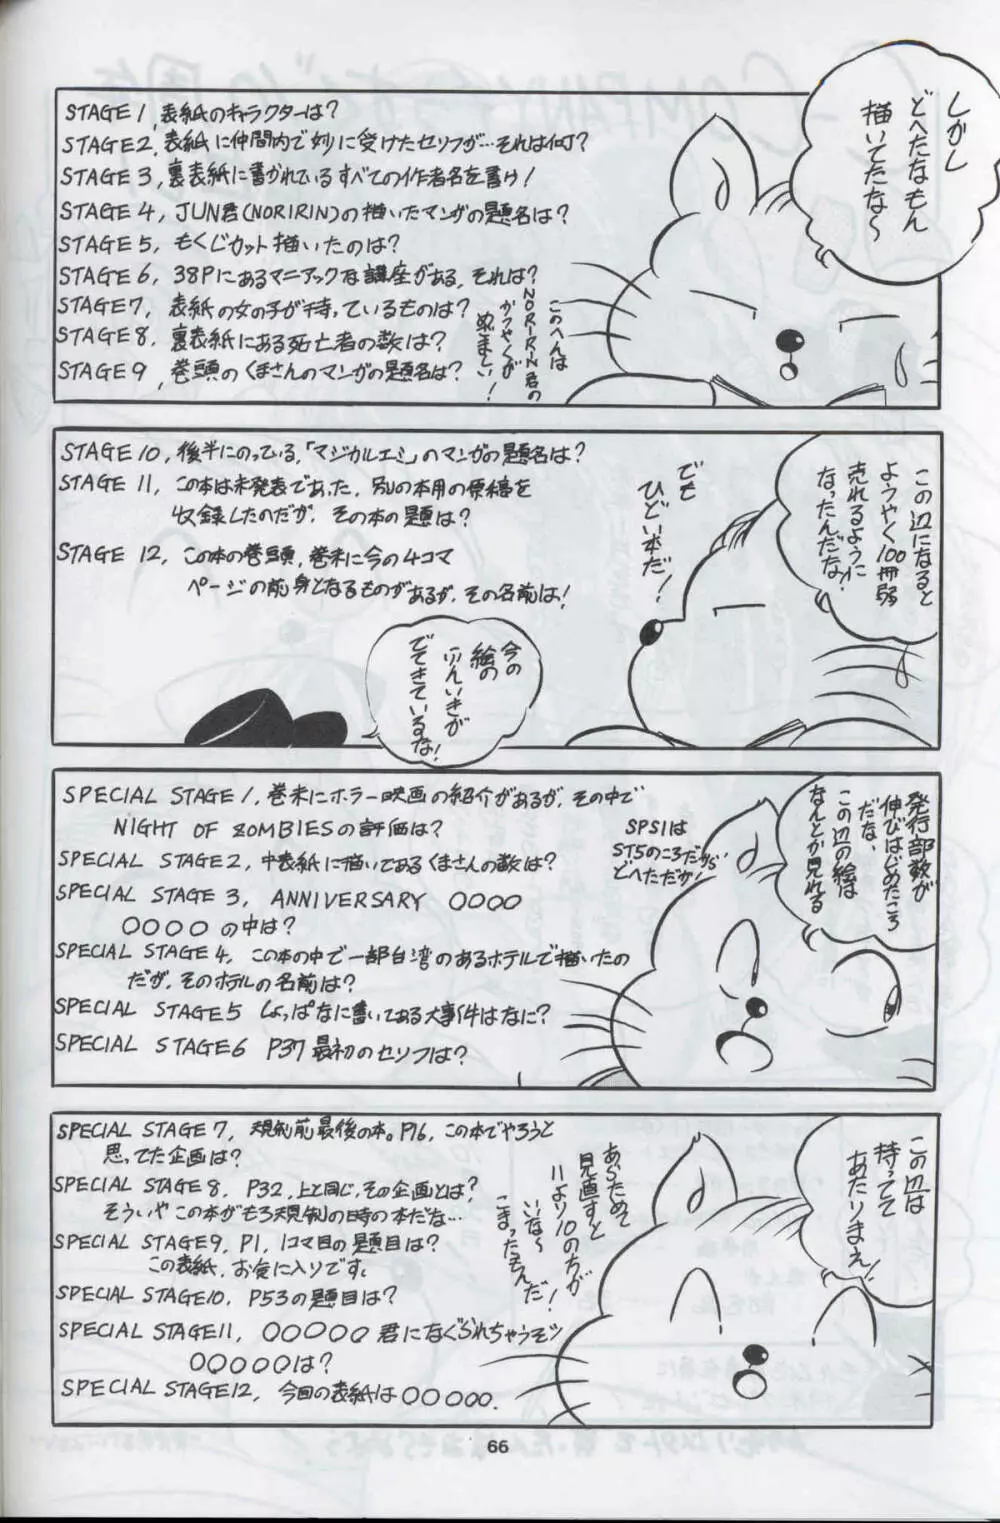 しかし
どへたなもん
描いてたな～
STAGE 1, 表紙のキャラクターは?
STAGE 2, 表紙に仲間内で妙に受けたセリフが…それは何?
STAGE 3, 裏表紙に書かれているすべての作者名を書け!
STAGE 4, JUN君(NORIRIN)の描いたマンガの題名は?
STAGE 5, もくじカット描いたのは?
STAGE 6, 38Pにあるマニアックな講座がある、それは?
STAGE 7, 表紙の女の子が持っているものは?
STAGE 8, 裏表紙にある死亡者の数は?
STAGE 9, 巻頭のくまさんのマンガの題名は?
このへんは
NORIRIN君の
かつやくが
めざましい!
この辺になると
ようやく100冊弱
売れるように
なったんだな!
でも
ひどい本だ!
STAGE 10, 後半にのっている,「マジカルエミ」のマンガの題名は?
STAGE 11, この本は未発表であった, 別の本用の原稿を
収録したのだが, その本の題は?
STAGE 12, この本の巻頭, 巻末に今の4コマ
ページの前身となるものがあるが, その名前は!
今の
絵の
ふんいきが
でてきているな!
発行部数が
伸びはじめたころ
だな、
この辺の絵は
なんとか見れる
SPECIAL STAGE 1, 巻末にホラー映画の紹介があるが, その中で
NIGHT OF ZOMBIESの評価は?
SPECIAL STAGE 2, 中表紙に描いてあるくまさんの数は?
SPECIAL STAGE 3, ANNIVERSARY ○○○○
○○○○ の中は?
SPECIAL STAGE 4, この本の中で一部台湾のあるホテルで描いたの
だが, そのホテルの名前は?
SPECIAL STAGE 5 しょっぱなに書いてある大事件はなに?
SPECIAL STAGE 6 P37 最初のセリフは?
SPS1は
ST5のころだから
どへただが!
この辺は
持ってて
あたりまえ!
SPECIAL STAGE 7, 規制前最後の本。P16, この本でやろうと
思ってた企画は?
SPECIAL STAGE 8, P32, 上と同じ, その企画とは?
そういや この本がもろ規制の時の本だな…
SPECIAL STAGE 9, P1, 1コマ目の題目は?
この表紙, お気に入りです。
SPECIAL STAGE 10, P53の題目は?
SPECIAL STAGE 11, ○○○○○ 君になぐられちゃうぞッ
○○○○○は?
SPECIAL STAGE 12, 今回の表紙は○○○○○.
あらためて
見直すと
11より10の方が
いいな～
こまったもんだ!
66